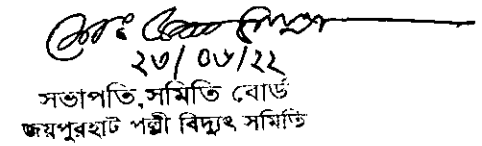 ২৩/০৮/২২
সভাপতি, সমিতি বোর্ড
জয়পুরহাট পল্লী বিদ্যুৎ সমিতি